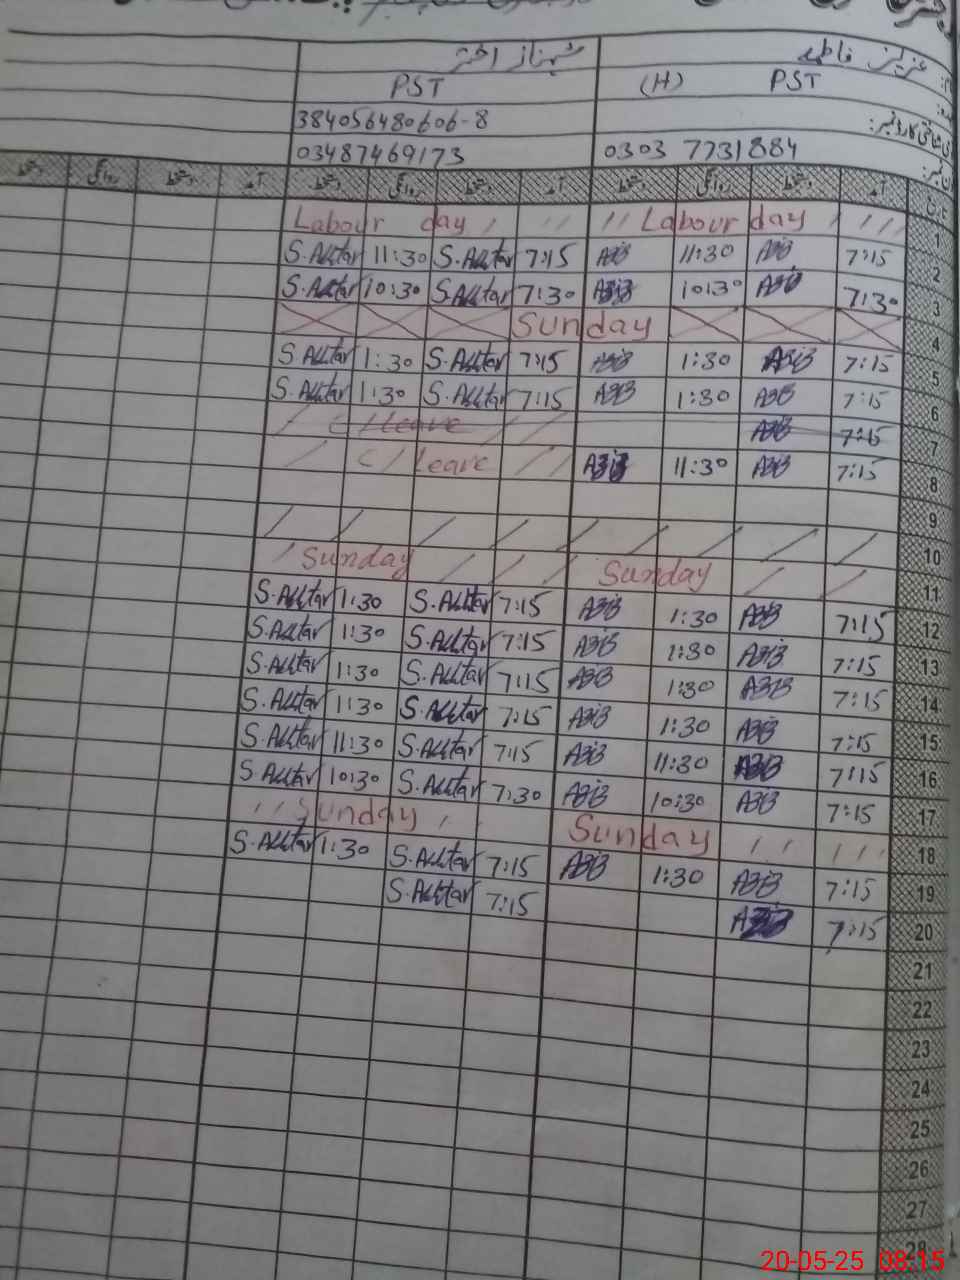 عزیز فاطمہ شہناز اختر
PST (H) PST
38405648060 6-8
0303 7731884 03487469173
آمد دستخط روانگی دستخط آمد دستخط روانگی دستخط آمد دستخط روانگی دستخط تاریخ
Labour day Labour day 1
S.Akhtar 11:30 S.Akhtar 7:15 11:30 7:15 2
S.Akhtar 10:30 S.Akhtar 7:30 10:30 7:30 3
Sunday 4
S.Akhtar 1:30 S.Akhtar 7:15 1:30 7:15 5
S.Akhtar 1:30 S.Akhtar 7:15 1:30 7:15 6
C/leave 7:15 7
C/leave 11:30 7:15 8
9
10
Sunday Sunday 11
S.Akhtar 1:30 S.Akhtar 7:15 1:30 7:15 12
S.Akhtar 1:30 S.Akhtar 7:15 1:30 7:15 13
S.Akhtar 1:30 S.Akhtar 7:15 1:30 7:15 14
S.Akhtar 1:30 S.Akhtar 7:15 1:30 7:15 15
S.Akhtar 11:30 S.Akhtar 7:15 11:30 7:15 16
S.Akhtar 10:30 S.Akhtar 7:30 10:30 7:15 17
Sunday Sunday 18
S.Akhtar 1:30 S.Akhtar 7:15 1:30 7:15 19
S.Akhtar 7:15 7:15 20
21
22
23
24
25
26
27
28
20-05-25 08:15